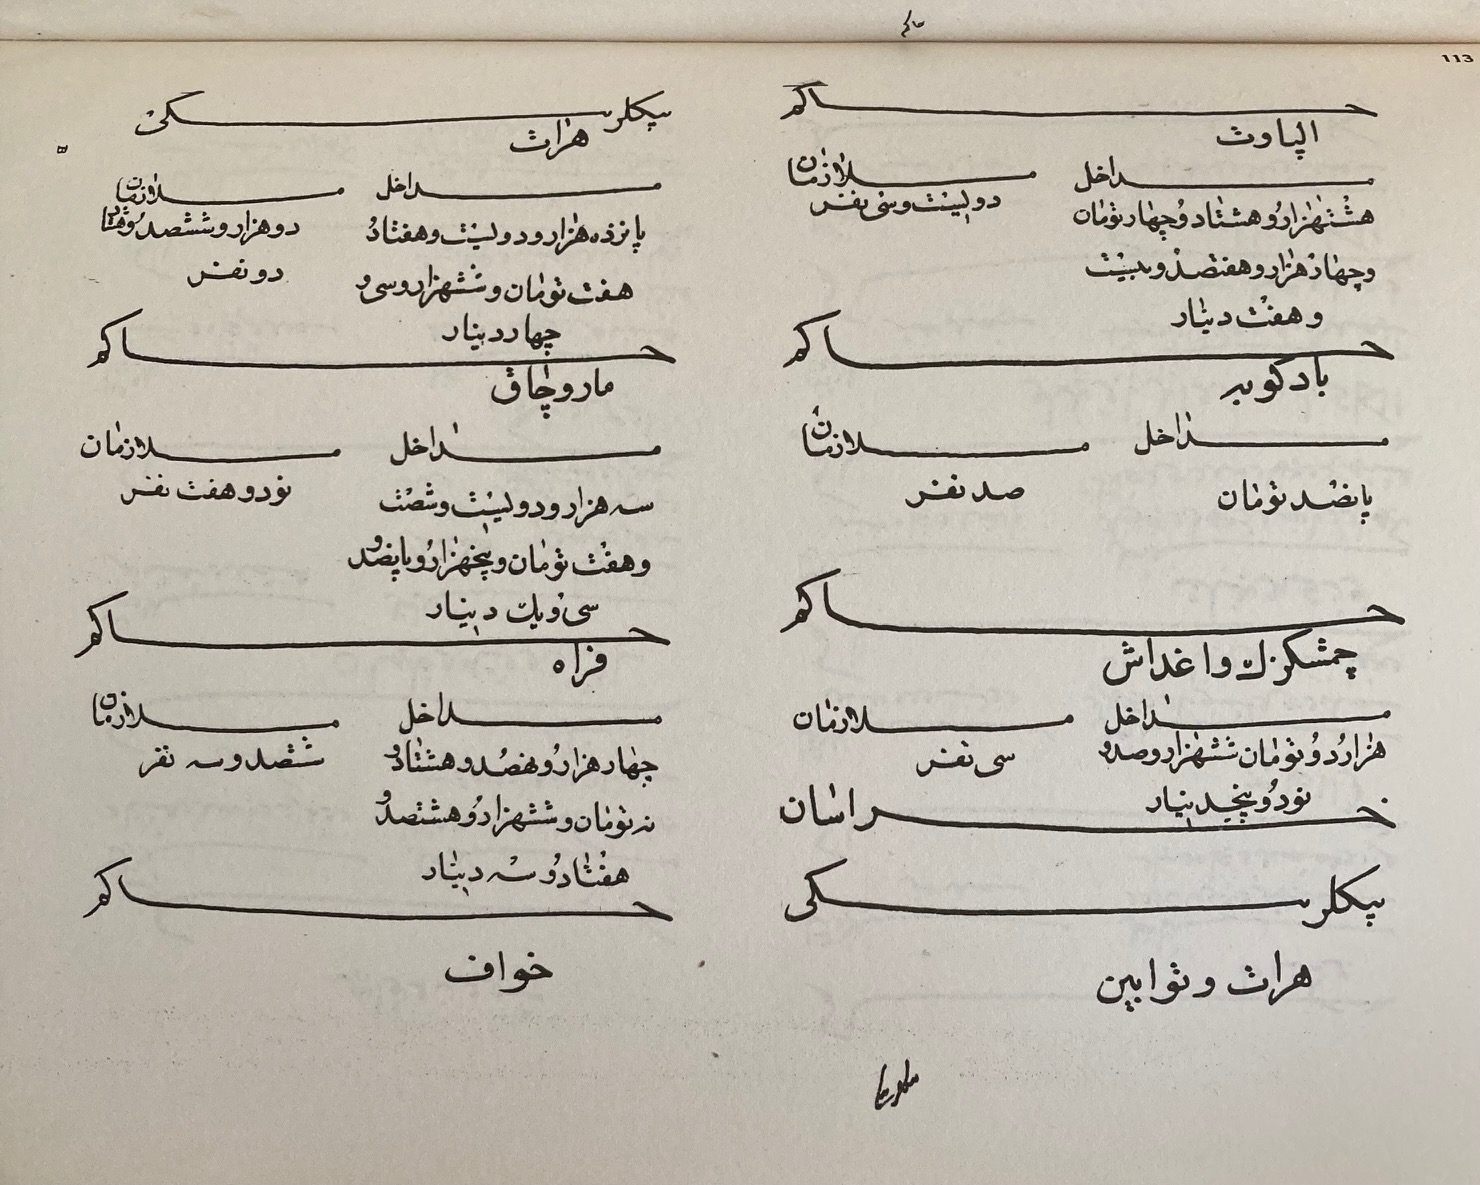 حاکم
113
حاکم
الپاوت
مداخل
ملازمان
هشتهزار و هشتاد و چهار تومان
و چهار هزار و هفتصد و بیست
و هفت دینار
دویست و سی نفر
حاکم
بادکوبه
مداخل
ملازمان
پانصد تومان
صد نفر
حاکم
چمشکزك و اغداش
مداخل
ملازمان
هزار و دو تومان ششهزار و صد و
نود و پنجدینار
سی نفر
خراسان
بیکلربیکی
هرات و توابین
بیکلربیکی
هرات
مداخل
ملازمان
پانزده هزار و دویست و هفتاد
هفت تومان و ششهزار و سی و
چهار دینار
دو هزار و ششصد و هشتاد
دو نفر
حاکم
ماروچاق
مداخل
ملازمان
سه هزار و دویست و شصت
و هفت تومان و پنجهزار و پانصد و
سی و یك دینار
نود و هفت نفر
حاکم
فراه
مداخل
ملازمان
چهار هزار و نهصد و هشتاد و
نه تومان و ششهزار و هشتصد و
هفتاد و سه دینار
ششصد و سه نفر
حاکم
خواف